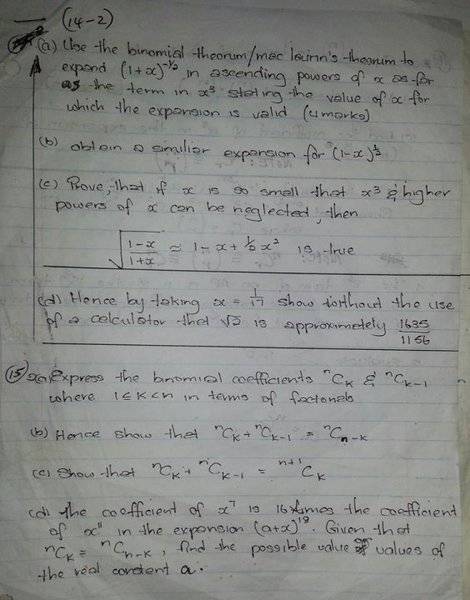 (14-2)
(a) Use the binomial theorum/mac laurin's theorum to
expand (1+x)^-½ in ascending powers of x as far
as the term in x³ stating the value of x for
which the expansion is valid (4marks)
(b) obtain a similar expansion for (1-x)^½
(c) Prove, that if x is so small that x³ & higher
powers of x can be neglected, then
√((1-x)/(1+x)) ≈ 1-x+½x² is true
(d) Hence by taking x = 1/17 show without the use
of a calculator that √2 is approximately 1635/1156
(15) (a) Express the binomial coefficients ⁿCk & ⁿCk-1
where 1≤K<n in terms of factorials
(b) Hence show that ⁿCk + ⁿCk-1 = ⁿCn-k
(c) Show that ⁿCk + ⁿCk-1 = ⁿ⁺¹Ck
(d) The coefficient of x⁷ is 16 times the coefficient
of x¹¹ in the expansion (a+x)¹⁸. Given that
ⁿCk = ⁿCn-k, find the possible value values of
the real constant a.